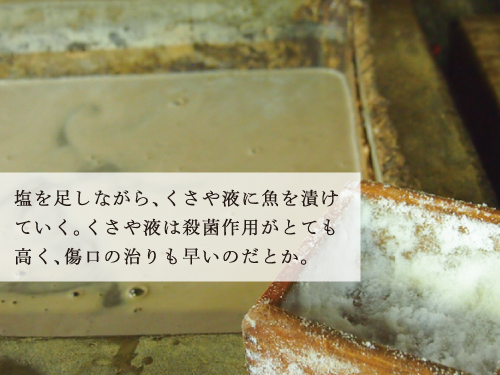 塩を足しながら、くさや液に魚を漬け
ていく。くさや液は殺菌作用がとても
高く、傷口の治りも早いのだとか。